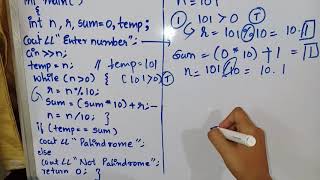 int main()
{
int n, r, sum=0, temp;
cout<<"Enter number";
cin>>n;
temp=n; // temp=101
while (n>0) { (101>0) T
r = n%10;
sum = (sum*10)+r;
n = n/10; }
if (temp==sum)
cout<<"Palindrome";
else
cout<<"Not Palindrome";
return 0; }
n=101
① 101>0 T
r = 101%10 = 1
sum = (0*10)+1 = 1
n = 101/10 = 10.1